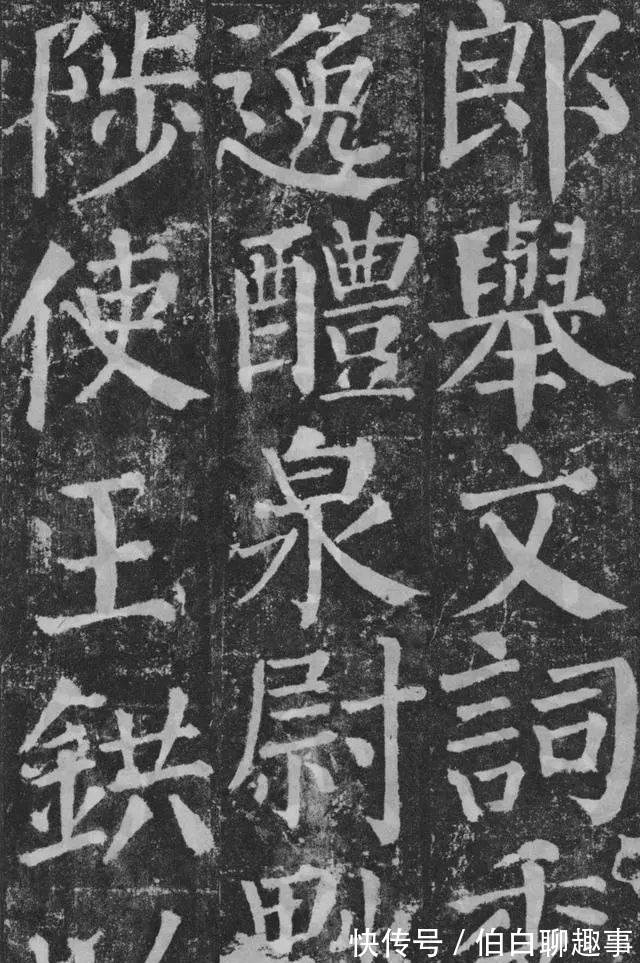 郎舉文詞
逸醴泉尉
陟使王鉷
快传号 / 伯白聊趣事